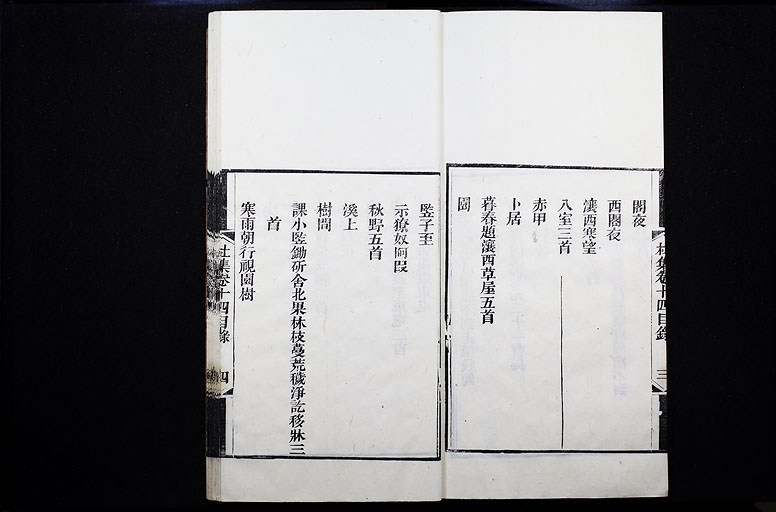 杜集卷十四目錄
三
閣夜
西閣夜
瀼西寒望
入宅三首
赤甲
卜居
暮春題瀼西草屋五首
園
豎子至
示獠奴阿段
秋野五首
溪上
樹間
課小豎鋤斫舍北果林枝蔓荒穢淨訖移牀三
首
寒雨朝行視園樹
杜集卷十四目錄
四